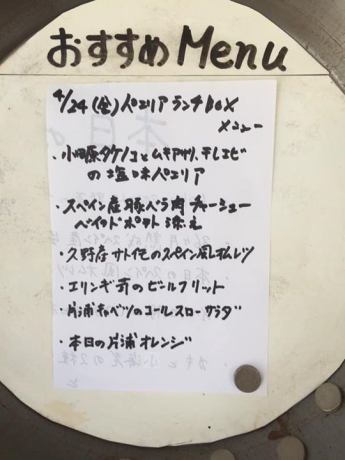 おすすめ Menu
4/24(金)パエリアランチBOX
メニュー
・小田原タケノコとムキアサリ、干しエビ
の塩味パエリア
・スペイン産豚バラ肉チャーシュー
ベイクドポテト添え
・久野産サトイモのスペイン風オムレツ
・エリンギ茸のビールフリット
・片浦キャベツのコールスローサラダ
・本日の片浦オレンジ